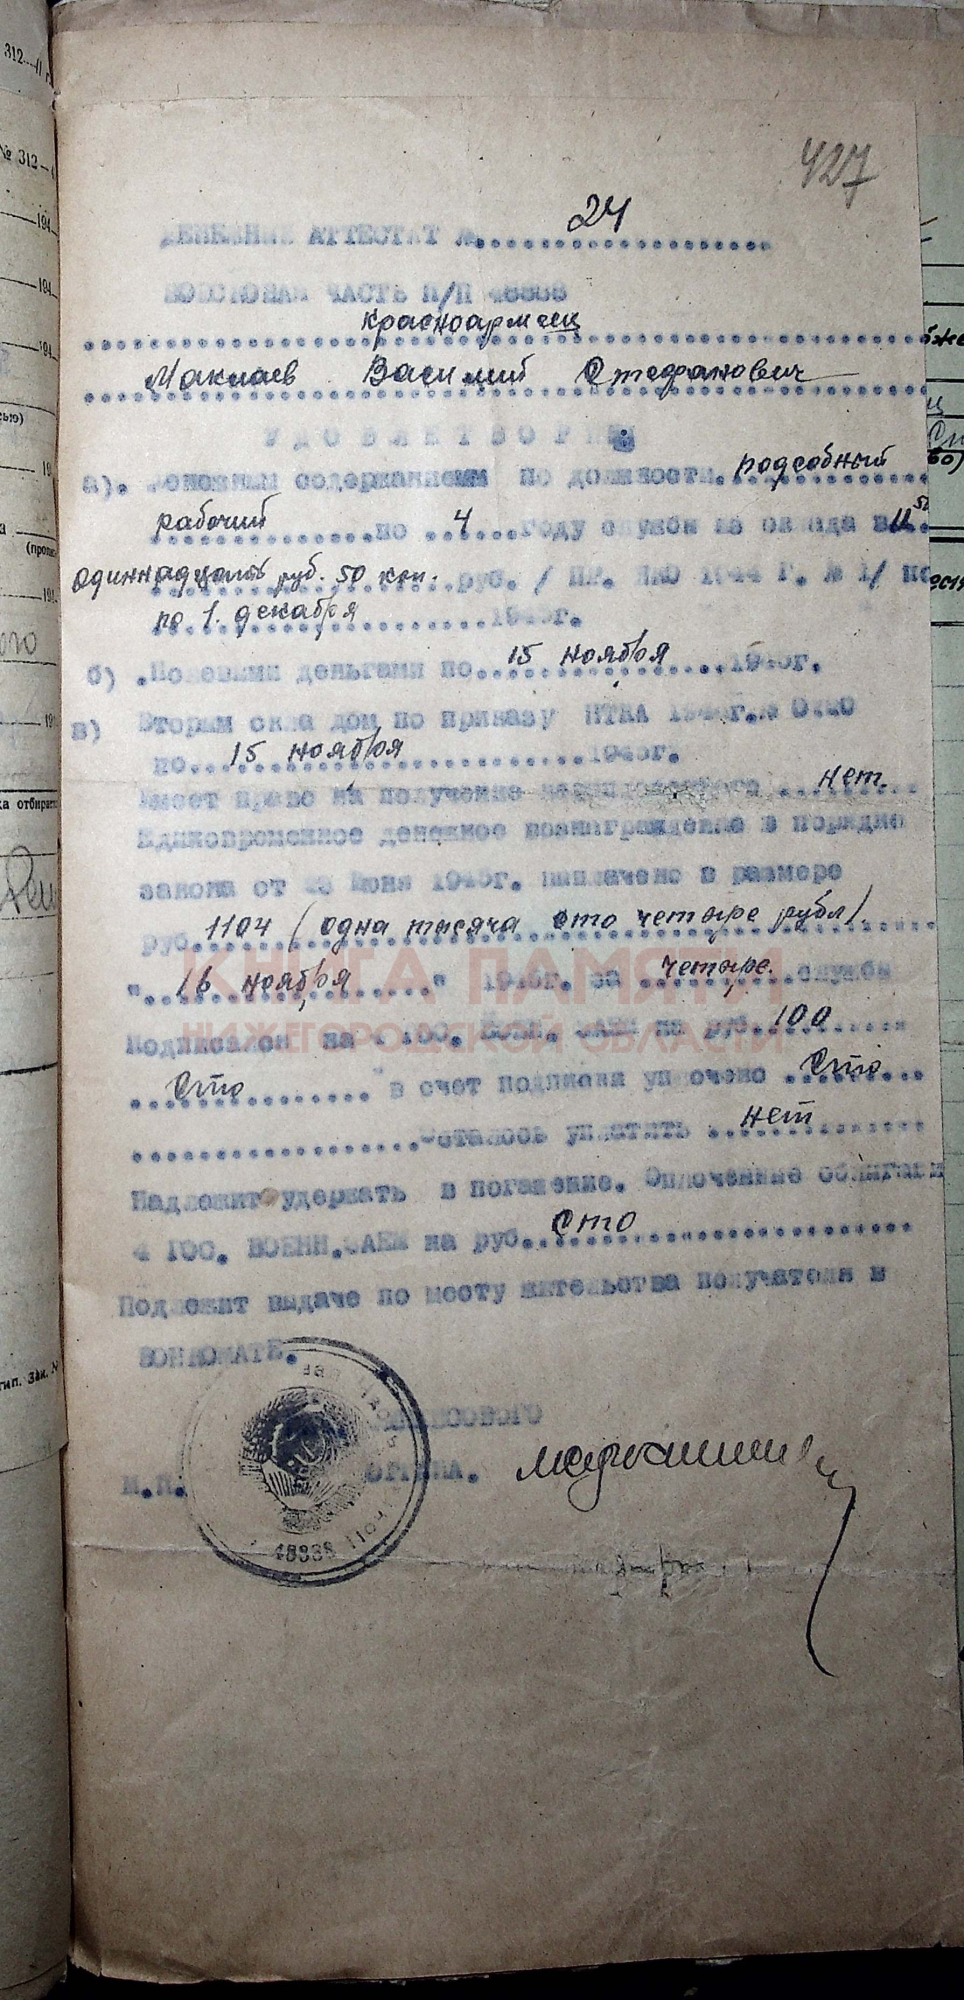 312—
№ 312—
194
427
ДЕНЕЖНЫЙ АТТЕСТАТ №. 24
ВОИСКОВАЯ ЧАСТЬ П/П 48338
красноармеец
Василий Стефанович
УДОВЛЕТВОРЕН
а). Денежным содержанием по должности подсобный
рабочий по 4 году службы из оклада в 11 50
одиннадцать руб. 50 коп. руб. / ПР. НКО 1944 Г. № 1/ по
по 1. декабря 1945г.
б) .Полевыми деньгами по 15 ноября 1945г.
в) Вторым окладом по приказу НКО
по 15 ноября 1945г.
Имеет право на получение нет
Единовременное денежное вознаграждение в порядке
закона от 23 Июня 1945г. выплачено в размере
руб. 1104 (одна тысяча сто четыре рубл)
КНИГА ПАМЯТИ
" 16 ноября " 1945г. за четыре службы
НИЖЕГОРОДСКОЙ ОБЛАСТИ
Подписался на 4 ГОС. ВОЕН. ЗАЕМ на руб. 100
Сто в счет подписки уплочено Сто
Осталось уплатить нет
Надлежит удержать в погашение. Оплоченные облигации
4 ГОС. ВОЕНН.ЗАЕМ на руб. Сто
Подлежит выдаче по месту жительства получателя в
ВОЕНКОМАТЕ.
ФИНАНСОВОГО
М.П. ОРГАНА.
48338